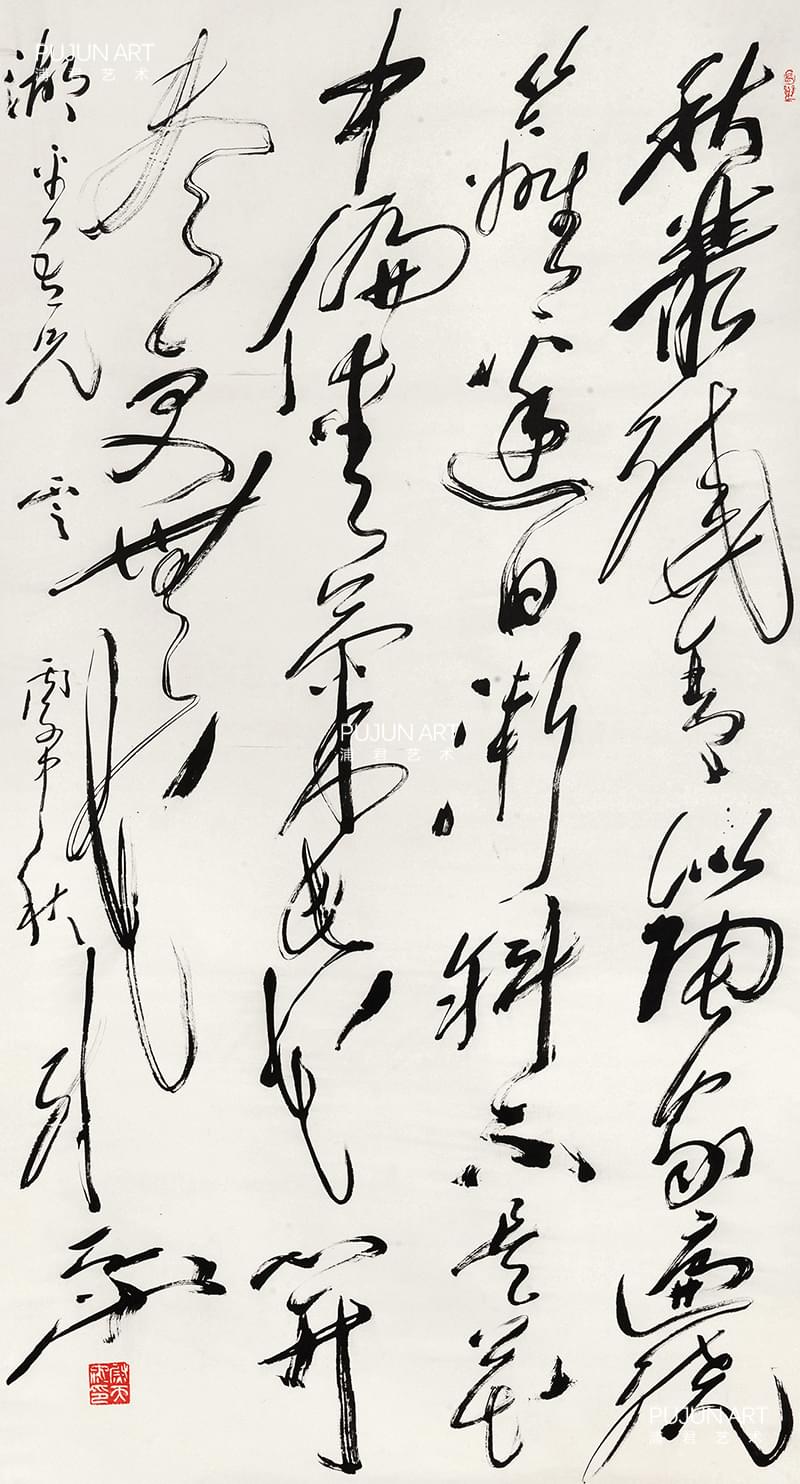 秋叢繞舍似陶家遍繞
籬邊日漸斜不是花
中偏愛菊此花開
盡更無花
湖平吾兄
秋
尉天池印
PUJUN ART
浦君艺术
PUJUN ART
浦君艺术
PUJUN ART
浦君艺术